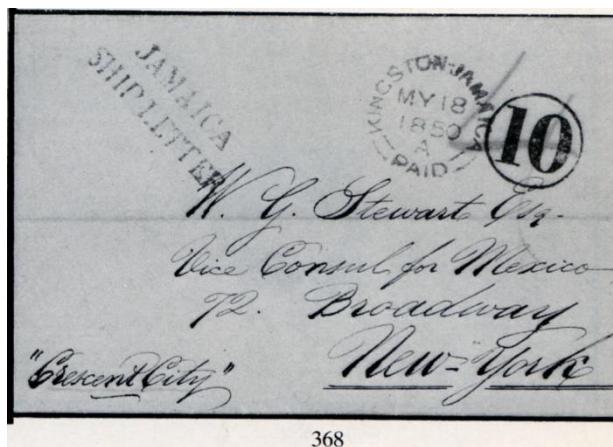 JAMAICA
SHIP LETTER
KINGSTON-JAMAICA
MY 18
1850
A
PAID
10
W. G. Stewart Esq.
Vice Consul for Mexico
72. Broadway
New-York
"Crescent City"
368